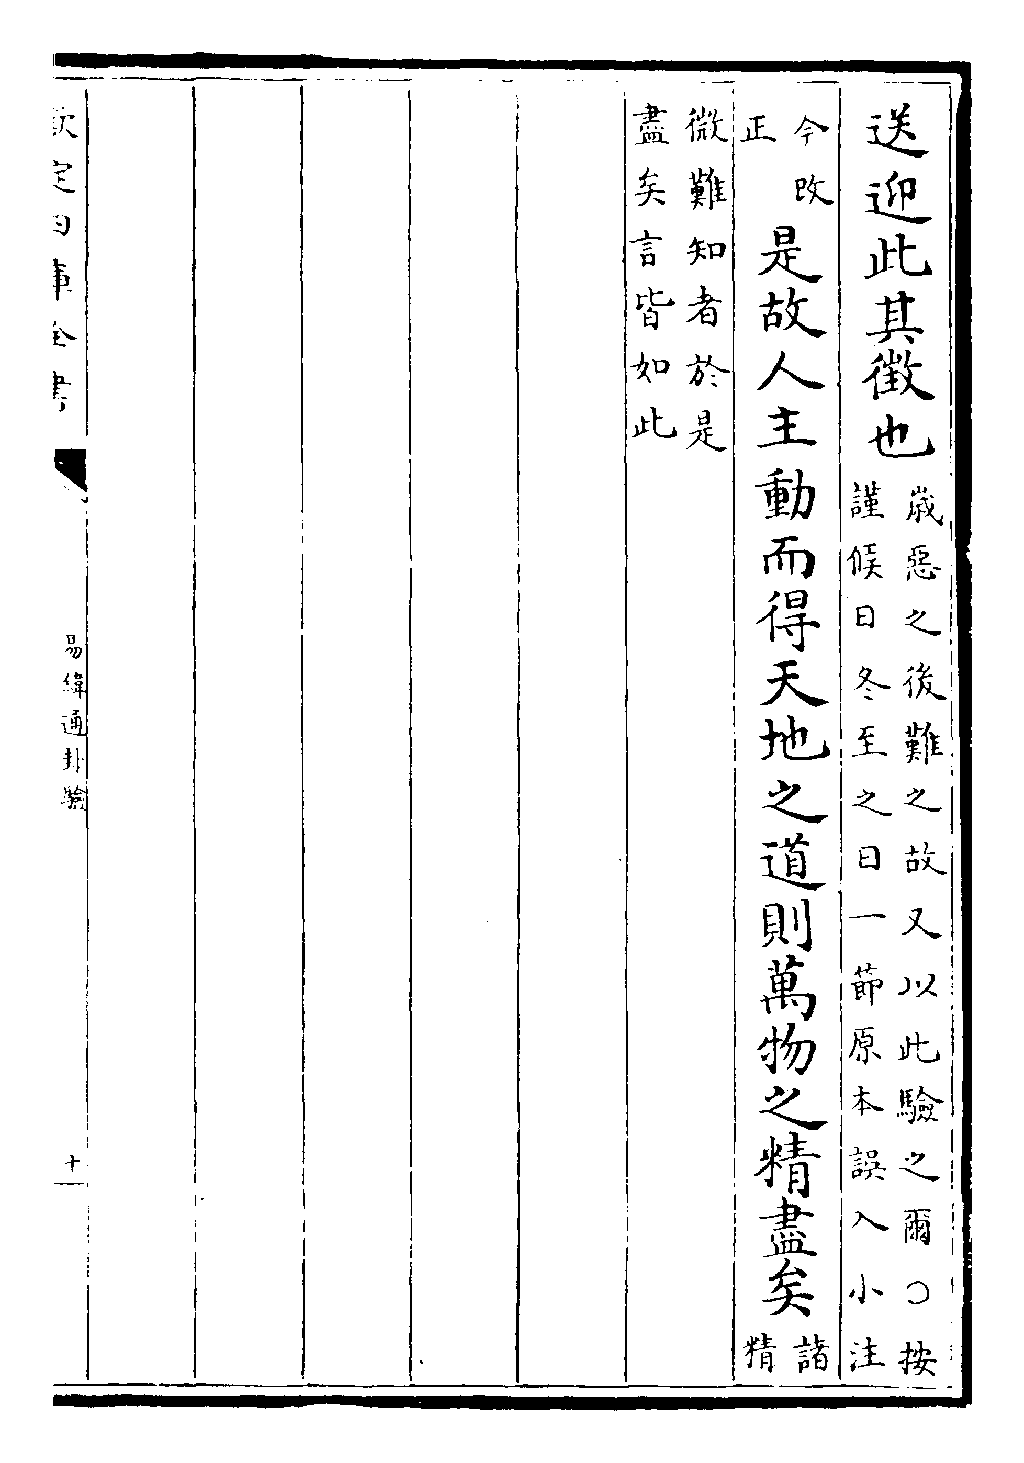 送迎此其徵也
歲惡之後難之故又以此驗之爾○按
謹候日冬至之日一節原本誤入小注
今改
正
是故人主動而得天地之道則萬物之精盡矣
諸
精
微難知者於是
盡矣言皆如此
欽定四庫全書
易緯通卦驗
十